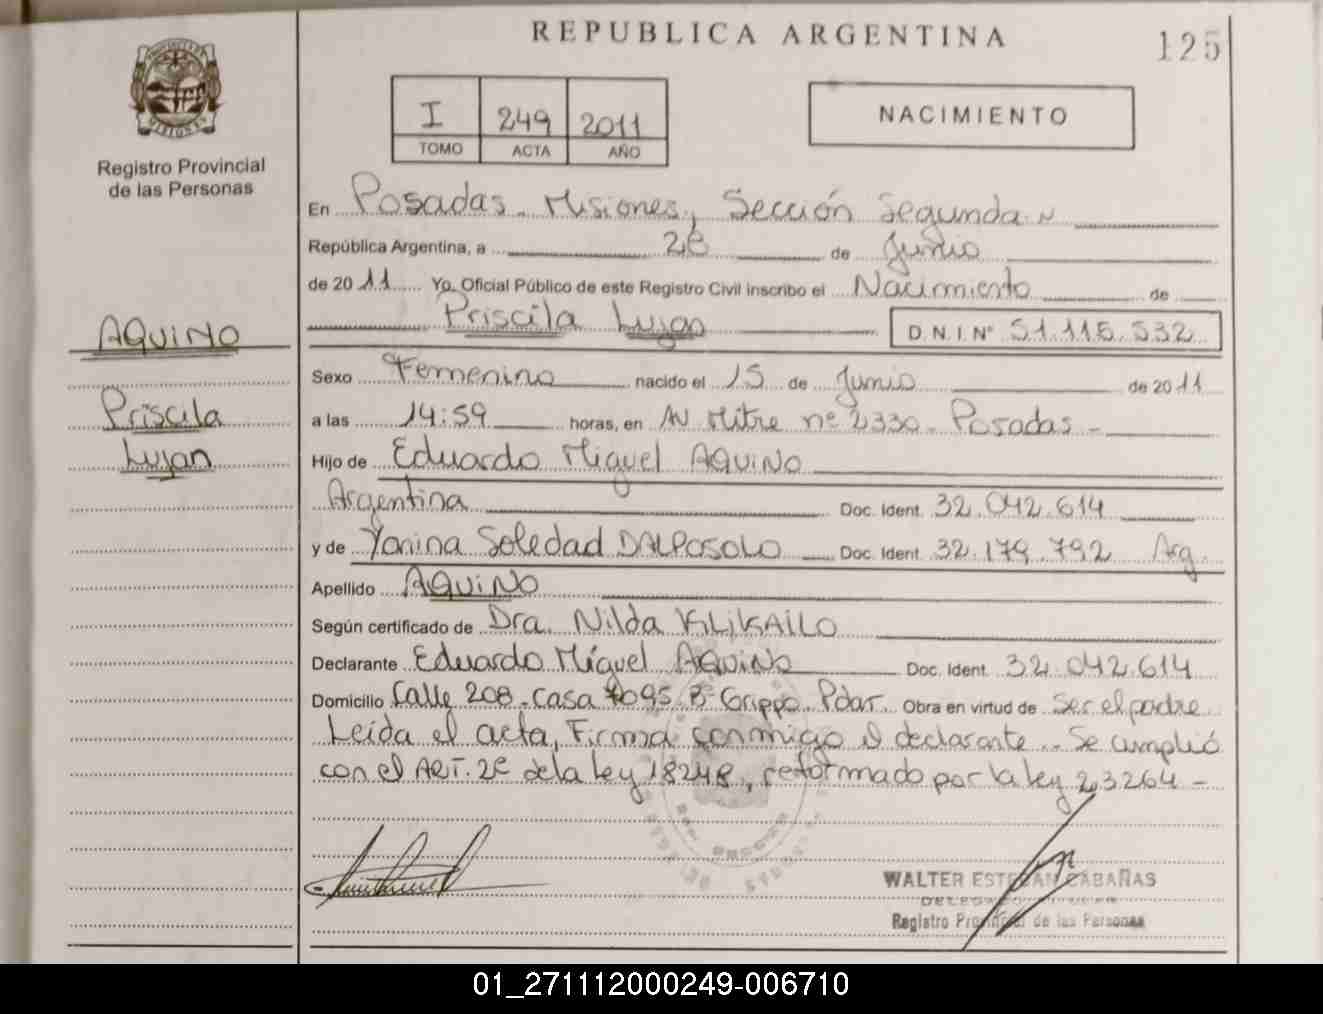 REPUBLICA ARGENTINA
125
Registro Provincial
de las Personas
I 249 2011
TOMO ACTA AÑO
NACIMIENTO
En Posadas. Misiones, Sección Segunda
República Argentina, a 28 de Junio
de 2011 Yo, Oficial Público de este Registro Civil inscribo el Nacimiento de
Priscila Lujan D.N.I. Nº 51.115.532
AQUINO
Priscila
Lujan
Sexo Femenino nacido el 15 de Junio de 2011
a las 14:59 horas, en AV Mitre nº 2330. Posadas -
Hijo de Eduardo Miguel AQUINO
Argentina Doc. Ident. 32.042.614
y de Yanina Soledad DALPOSOLO Doc. Ident. 32.179.792 Arg.
Apellido AQUINO
Según certificado de Dra. Nilda KLIKAILO
Declarante Eduardo Miguel AQUINO Doc. Ident. 32.042.614
Domicilio Calle 208. Casa 7095 Bº Grippo. Pdas. Obra en virtud de Ser el padre
Leída el acta, Firma conmigo el declarante.. Se cumplió
con el ART. 2º de la Ley 18248, reformado por la ley 23264 -
WALTER ESTEBAN CABAÑAS
Registro Provincial de las Personas
01_271112000249-006710